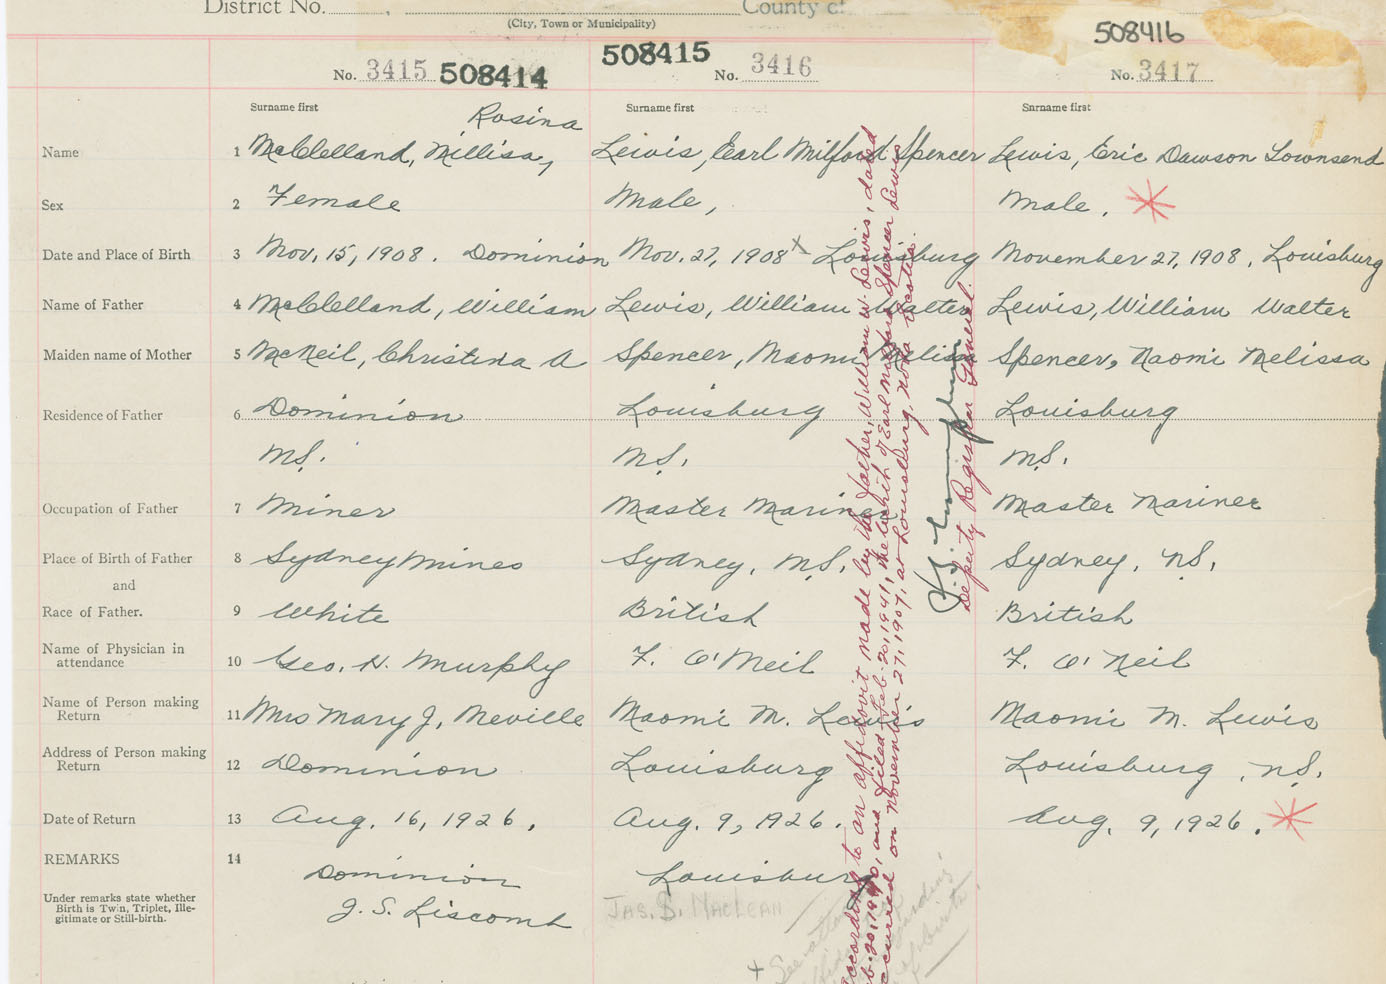 District No. , County of
(City, Town or Municipality)
No. 3415 508414 508415 No. 3416 508416 No. 3417
Surname first Surname first Surname first
Rosina
Name 1 McClelland, Millisa, Lewis, Earl Milford Spencer Lewis, Eric Dawson Townsend
Sex 2 Female Male, Male.
Date and Place of Birth 3 Nov. 15, 1908. Dominion Nov. 27, 1908 x Louisburg November 27, 1908, Louisburg
Name of Father 4 McClelland, William Lewis, William Walter Lewis, William Walter
Maiden name of Mother 5 McNeil, Christina A Spencer, Naomi Melissa Spencer, Naomi Melissa
Residence of Father 6 Dominion Louisburg Louisburg
N.S. N.S. N.S.
Occupation of Father 7 Miner Master Mariner Master Mariner
Place of Birth of Father 8 Sydney Mines Sydney, N.S. Sydney, N.S.
and
Race of Father. 9 White British British
Name of Physician in attendance 10 Geo. H. Murphy F. O'Neil F. O'Neil
Name of Person making Return 11 Mrs Mary J. Neville Naomi M. Lewis Naomi M. Lewis
Address of Person making Return 12 Dominion Louisburg Louisburg, N.S.
Date of Return 13 Aug. 16, 1926. Aug. 9, 1926. Aug. 9, 1926.
REMARKS 14 Dominion Louisburg
Under remarks state whether
Birth is Twin, Triplet, Ille-
gitimate or Still-birth.
J. S. Liscomb JAS. S. MACLEAN
according to an affidavit made by the father, William W. Lewis, dated
20, 1940, and filed Feb. 20, 1941, the birth of Earl Milford Spencer Lewis
occurred on November 27, 1907, at Louisburg, Nova Scotia.
Deputy Registrar General.
+ See
of birth